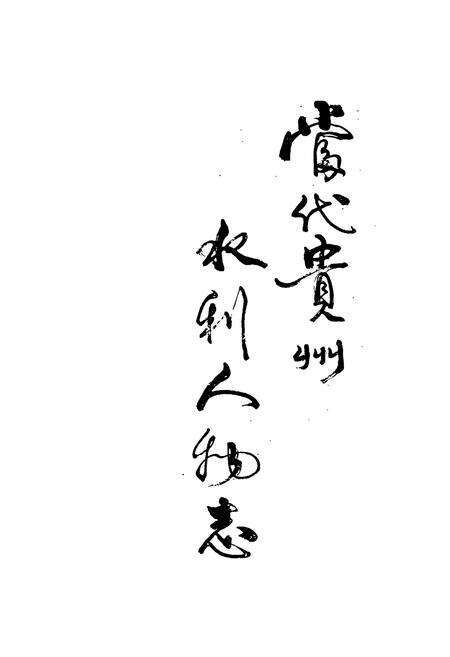 當代貴州
水利人物志